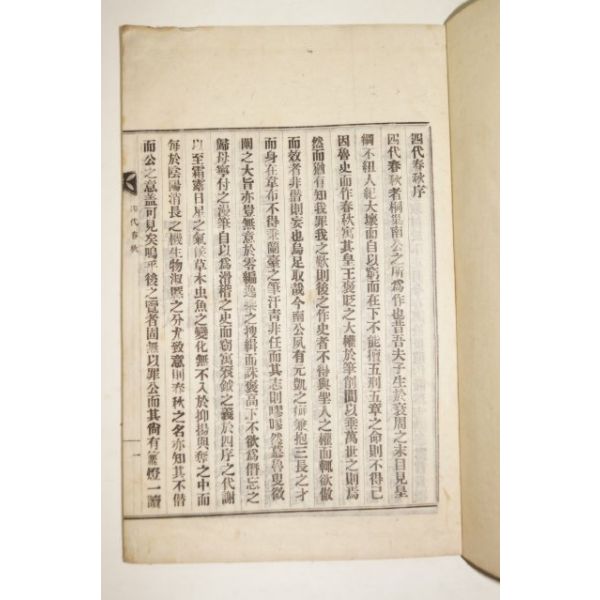 四代春秋序
四代春秋者桐巢南公之所爲作也昔吾夫子生於衰周之末目見皇
綱不紐人紀大壞而自以窮而在下不能擅五刑五章之命則不得已
因魯史而作春秋寓其皇王褒貶之大權於筆削間以垂萬世之則焉
然而猶有知我罪我之歎則後之作史者不得與聖人之權而輒欲倣
而效者非僭則妄也烏足取哉今南公夙有元凱之癖兼抱三長之才
而身在韋布不得秉蘭臺之筆汗靑非任而其志則嘐嘐然慕魯叟微
闡之大旨亦豈無意於零編逸乘之搜緝而誅褒高下不欲爲僭忘之
歸毋寧付之漫筆自以爲滑稽之史而窃寓袞鉞之義於四序之代謝
以至霜露日星之氣候草木虫魚之變化無不入於抑揚與奪之中而
每於陰陽消長之機生物淑慝之分尤致意則春秋之名亦知其不僭
而公之意盖可見矣嗚乎後之覽者固無以罪公而其倘有燈一讀
四代春秋
一